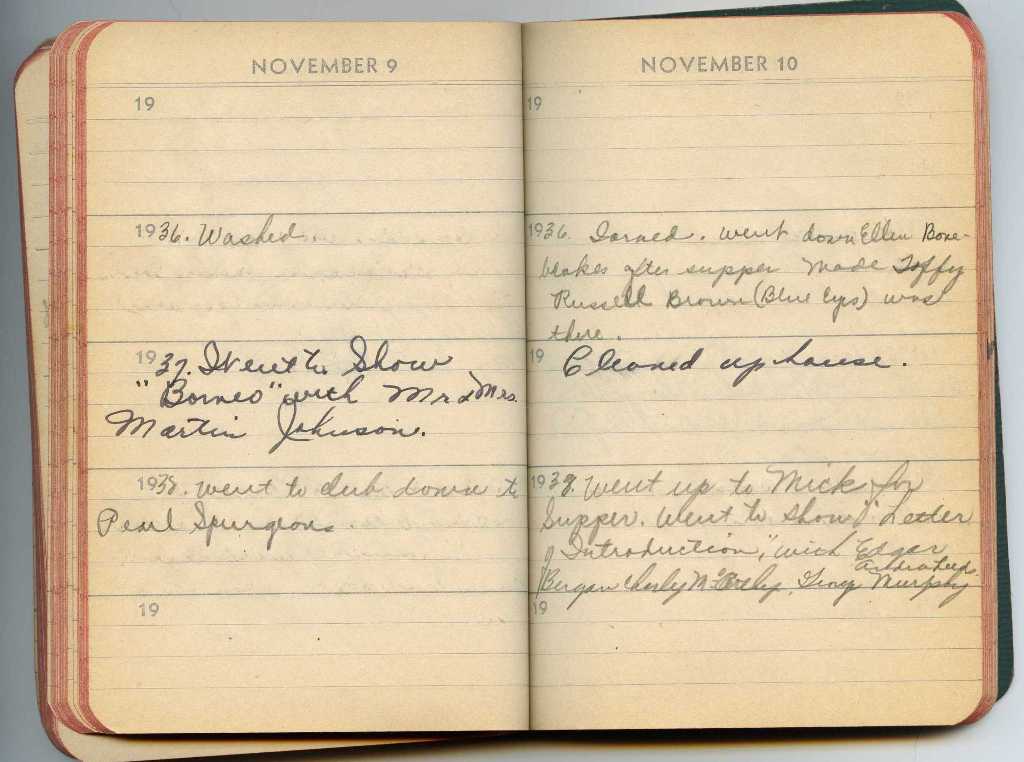 NOVEMBER 9
19
1936. Washed.
1937. Went to Show
"Borneo" with Mr & Mrs.
Martin Johnson.
1938. Went to club down to
Pearl Spurgeons
19
NOVEMBER 10
19
1936. Ironed. Went down Ellen Bone-
brakes after supper Made Toffy
Russell Brown (Blue Eyes) was
there.
19 Cleaned up house.
1938. Went up to Mick for
Supper. Went to show "Letter
of Introduction", with Edgar
Andrea Leeds.
Bergan Charley McCarthy, Murphy
19